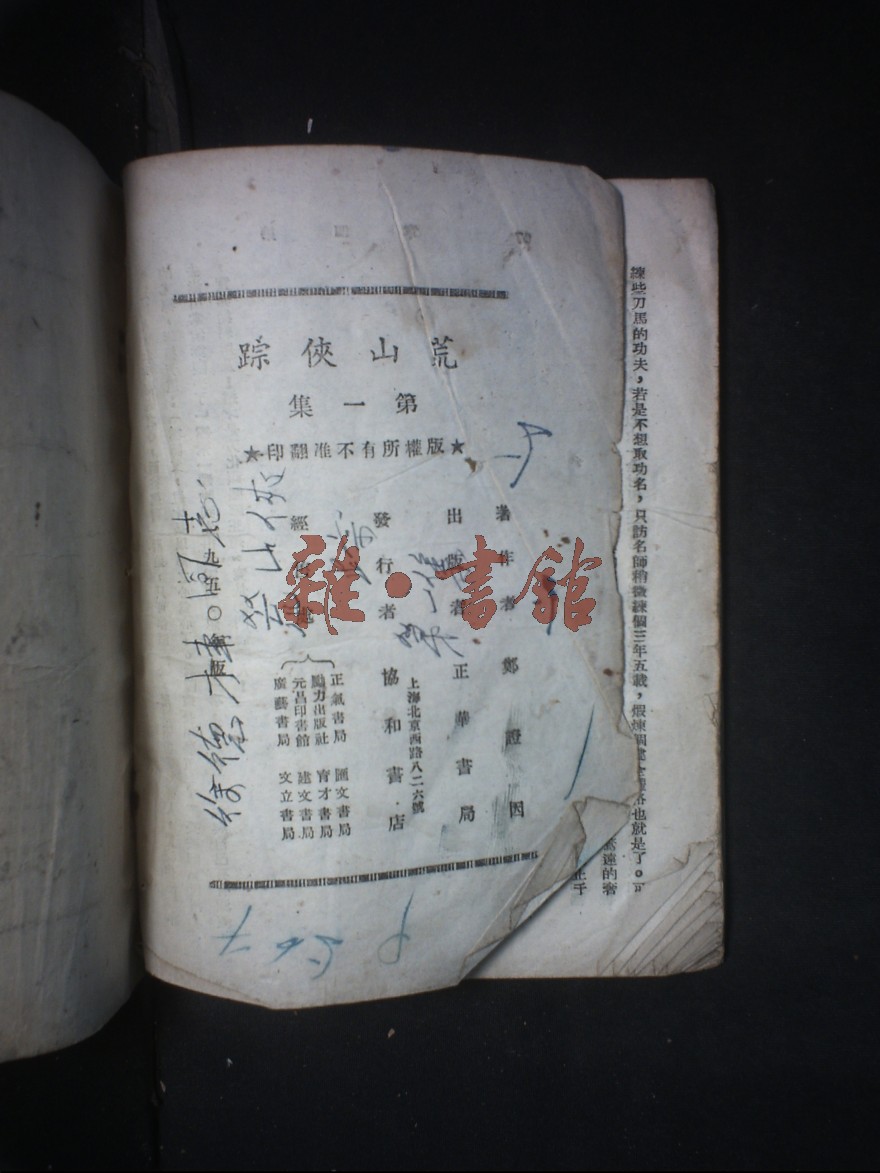 荒山俠踪
第一集
★版權所有不准翻印★
著作者 鄭證因
出版者 正華書局
上海北京西路八二六號
發行者 協和書店
經
正氣書局 匯文書局
勵力出版社 育才書局
元昌印書館 建文書局
廣藝書局 文立書局
九五〇年 版
荒山俠
第一集
徐德
P 567
雜·書館
練些刀馬的功夫，若是不想取功名，只訪名師稍微練個三年五載，煅煉個
也就是了。可